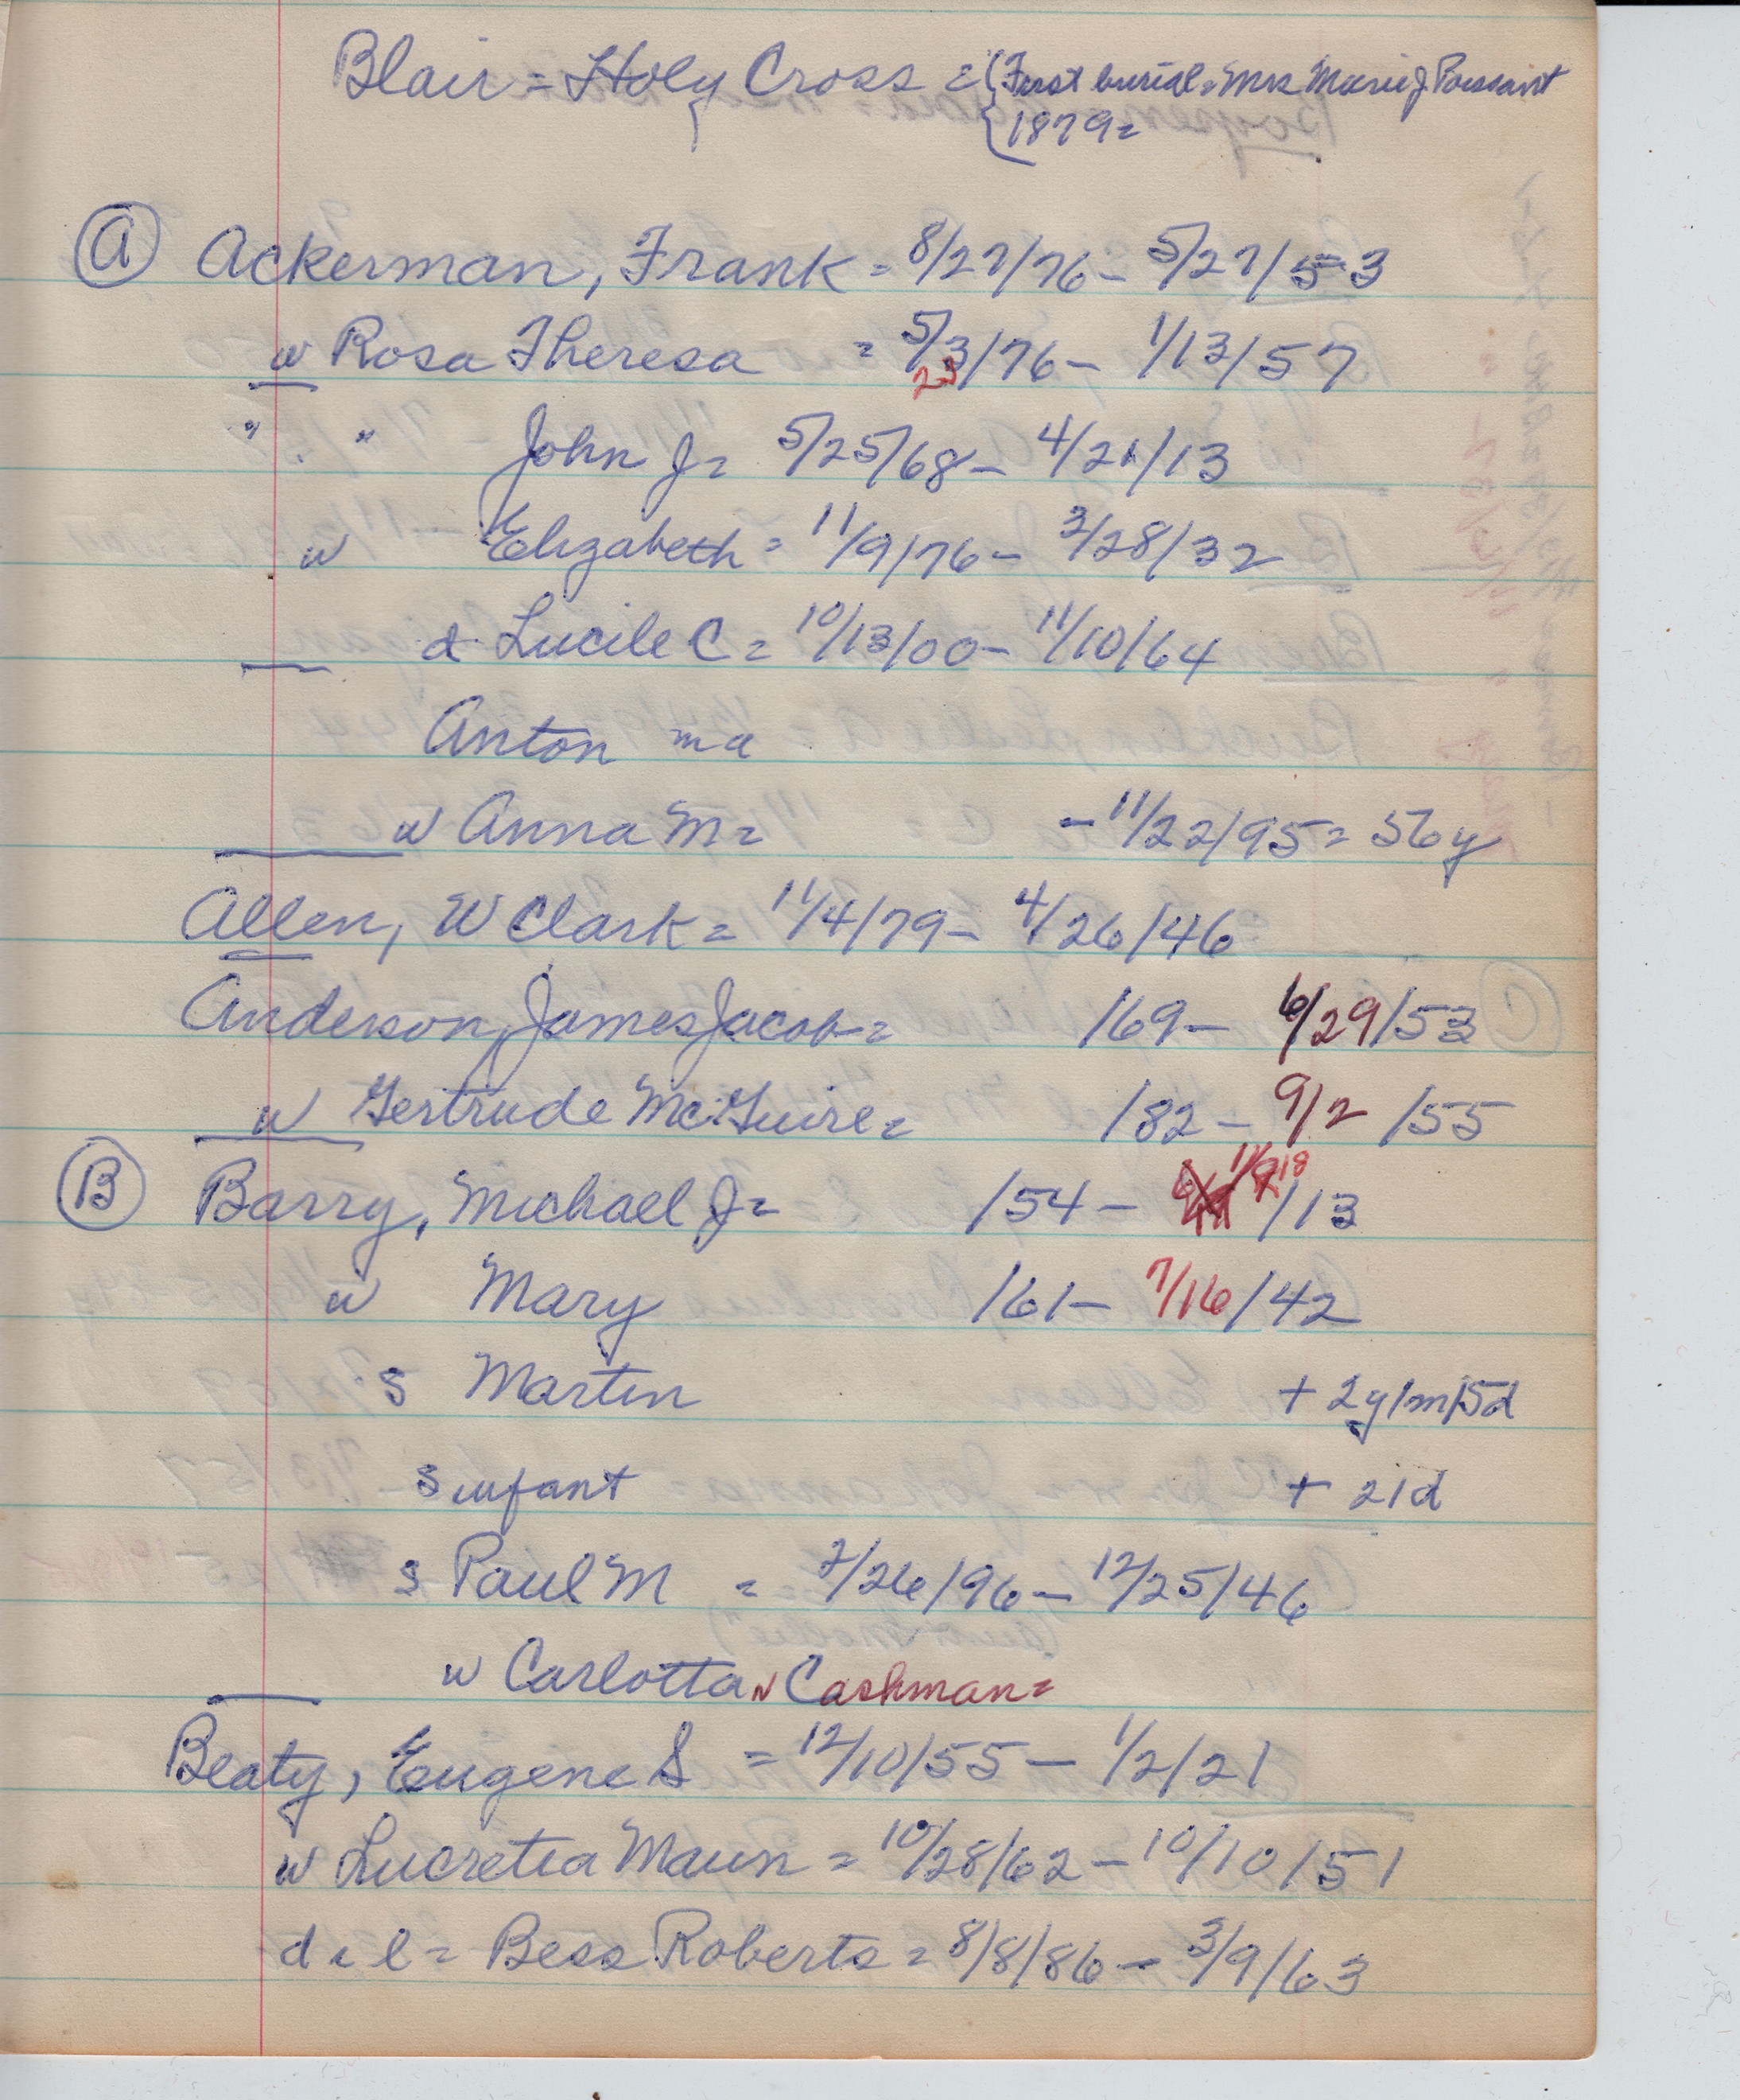 Blair = Holy Cross = { First burial = Mrs Marie J Poissant
1879 =
A Ackerman, Frank = 8/27/76 - 5/27/53
w Rosa Theresa = 5/3/76 - 1/13/57
23
" " John J = 5/25/68 - 4/21/13
w Elizabeth = 11/9/76 - 3/28/32
d Lucile C = 10/13/00 - 11/10/64
Anton ma
w Anna M = - 11/22/95 = 56y
Allen, W Clark = 11/4/79 - 4/26/46
Anderson, James Jacob = /69 - 6/29/53
w Gertrude McGuire = /82 - 9/2 /55
B Barry, Michael J = /54 - 11/ /13
w Mary /61 - 7/16/42
s Martin + 2y1m15d
s infant + 21d
s Paul M = 7/26/96 - 12/25/46
w Carlotta N Cashman =
Beaty, Eugene S = 12/10/55 - 1/2/21
w Lucretia Maun = 10/28/62 - 10/10/51
d i l = Bess Roberts = 8/8/86 - 3/9/63